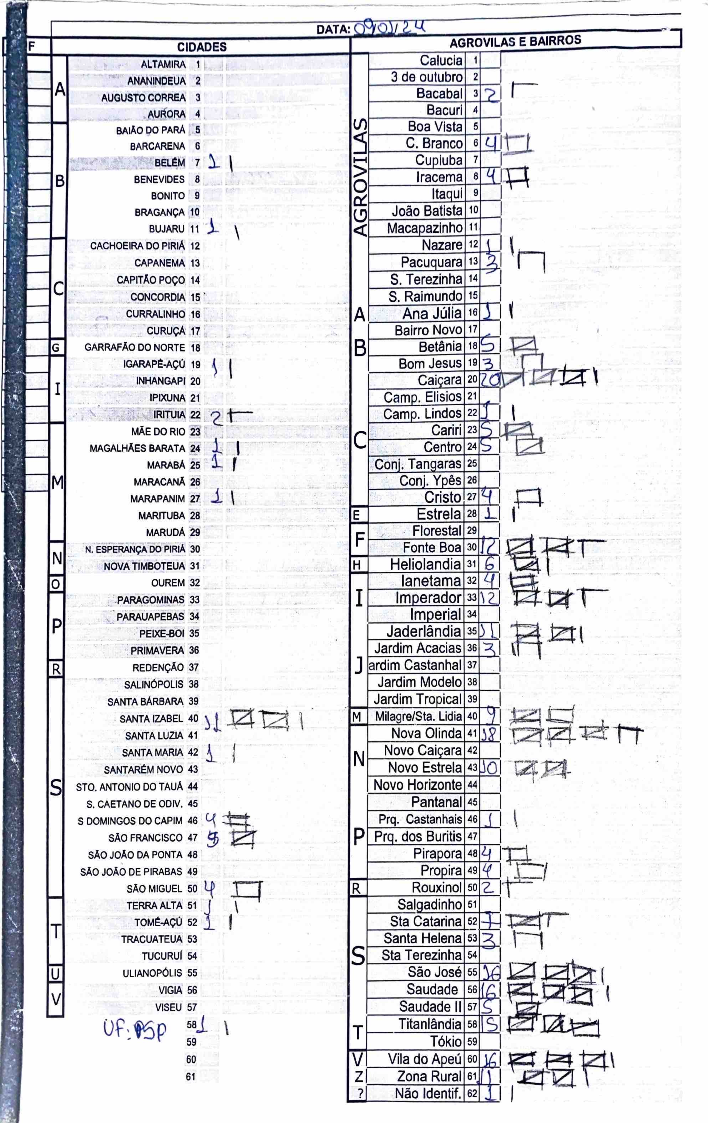 DATA: 09/01/24
F
CIDADES
AGROVILAS E BAIRROS
A
ALTAMIRA 1
ANANINDEUA 2
AUGUSTO CORREA 3
AURORA 4
B
BAIÃO DO PARÁ 5
BARCARENA 6
BELÉM 7 1
BENEVIDES 8
BONITO 9
BRAGANÇA 10
BUJARU 11 1
C
CACHOEIRA DO PIRIÁ 12
CAPANEMA 13
CAPITÃO POÇO 14
CONCORDIA 15
CURRALINHO 16
CURUÇÁ 17
G
GARRAFÃO DO NORTE 18
I
IGARAPÉ-AÇÚ 19 1
INHANGAPI 20
IPIXUNA 21
IRITUIA 22 2
M
MÃE DO RIO 23
MAGALHÃES BARATA 24 1
MARABÁ 25 1
MARACANÃ 26
MARAPANIM 27 1
MARITUBA 28
MARUDÁ 29
N
N. ESPERANÇA DO PIRIÁ 30
NOVA TIMBOTEUA 31
O
OUREM 32
P
PARAGOMINAS 33
PARAUAPEBAS 34
PEIXE-BOI 35
PRIMAVERA 36
R
REDENÇÃO 37
S
SALINÓPOLIS 38
SANTA BÁRBARA 39
SANTA IZABEL 40 11
SANTA LUZIA 41
SANTA MARIA 42 1
SANTARÉM NOVO 43
STO. ANTONIO DO TAUÁ 44
S. CAETANO DE ODIV. 45
S DOMINGOS DO CAPIM 46 4
SÃO FRANCISCO 47 5
SÃO JOÃO DA PONTA 48
SÃO JOÃO DE PIRABAS 49
SÃO MIGUEL 50 4
T
TERRA ALTA 51 1
TOMÉ-AÇÚ 52 1
TRACUATEUA 53
TUCURUÍ 54
U
ULIANÓPOLIS 55
V
VIGIA 56
VISEU 57
UF: SP 58 1
59
60
61
AGROVILAS
Calucia 1
3 de outubro 2
Bacabal 3 2
Bacuri 4
Boa Vista 5
C. Branco 6 4
Cupiuba 7
Iracema 8 4
Itaqui 9
João Batista 10
Macapazinho 11
Nazare 12 1
Pacuquara 13 3
S. Terezinha 14
S. Raimundo 15
A
Ana Júlia 16 1
Bairro Novo 17
B
Betânia 18 5
Bom Jesus 19 3
C
Caiçara 20 20
Camp. Elisios 21
Camp. Lindos 22 1
Cariri 23 5
Centro 24 5
Conj. Tangaras 25
Conj. Ypês 26
Cristo 27 4
E
Estrela 28 1
F
Florestal 29
Fonte Boa 30 12
H
Heliolandia 31 6
I
Ianetama 32 4
Imperador 33 12
Imperial 34
J
Jaderlândia 35 11
Jardim Acacias 36 3
ardim Castanhal 37
Jardim Modelo 38
Jardim Tropical 39
M
Milagre/Sta. Lidia 40 9
N
Nova Olinda 41 18
Novo Caiçara 42
Novo Estrela 43 10
Novo Horizonte 44
P
Pantanal 45
Prq. Castanhais 46 1
Prq. dos Buritis 47
Pirapora 48 4
Propira 49 4
R
Rouxinol 50 2
S
Salgadinho 51
Sta Catarina 52 7
Santa Helena 53 3
Sta Terezinha 54
São José 55 16
Saudade 56 16
Saudade II 57 5
T
Titanlândia 58 15
Tókio 59
V
Vila do Apeú 60 16
Z
Zona Rural 61 11
?
Não Identif. 62 1